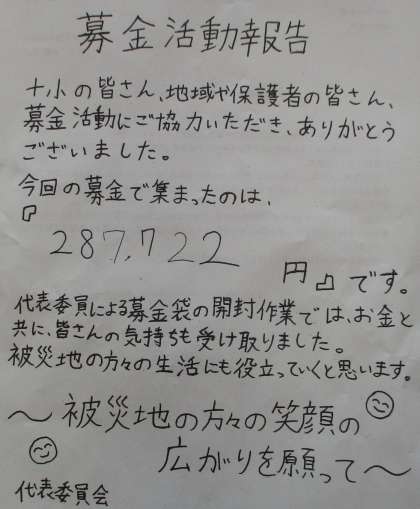 募金活動報告
十小の皆さん、地域や保護者の皆さん、
募金活動にご協力いただき、ありがとう
ございました。
今回の募金で集まったのは、
『
287,722
円』です。
代表委員による募金袋の開封作業では、お金と
共に、皆さんの気持ちも受け取りました。
被災地の方々の生活にも役立っていくと思います。
～被災地の方々の笑顔の
広がりを願って～
代表委員会